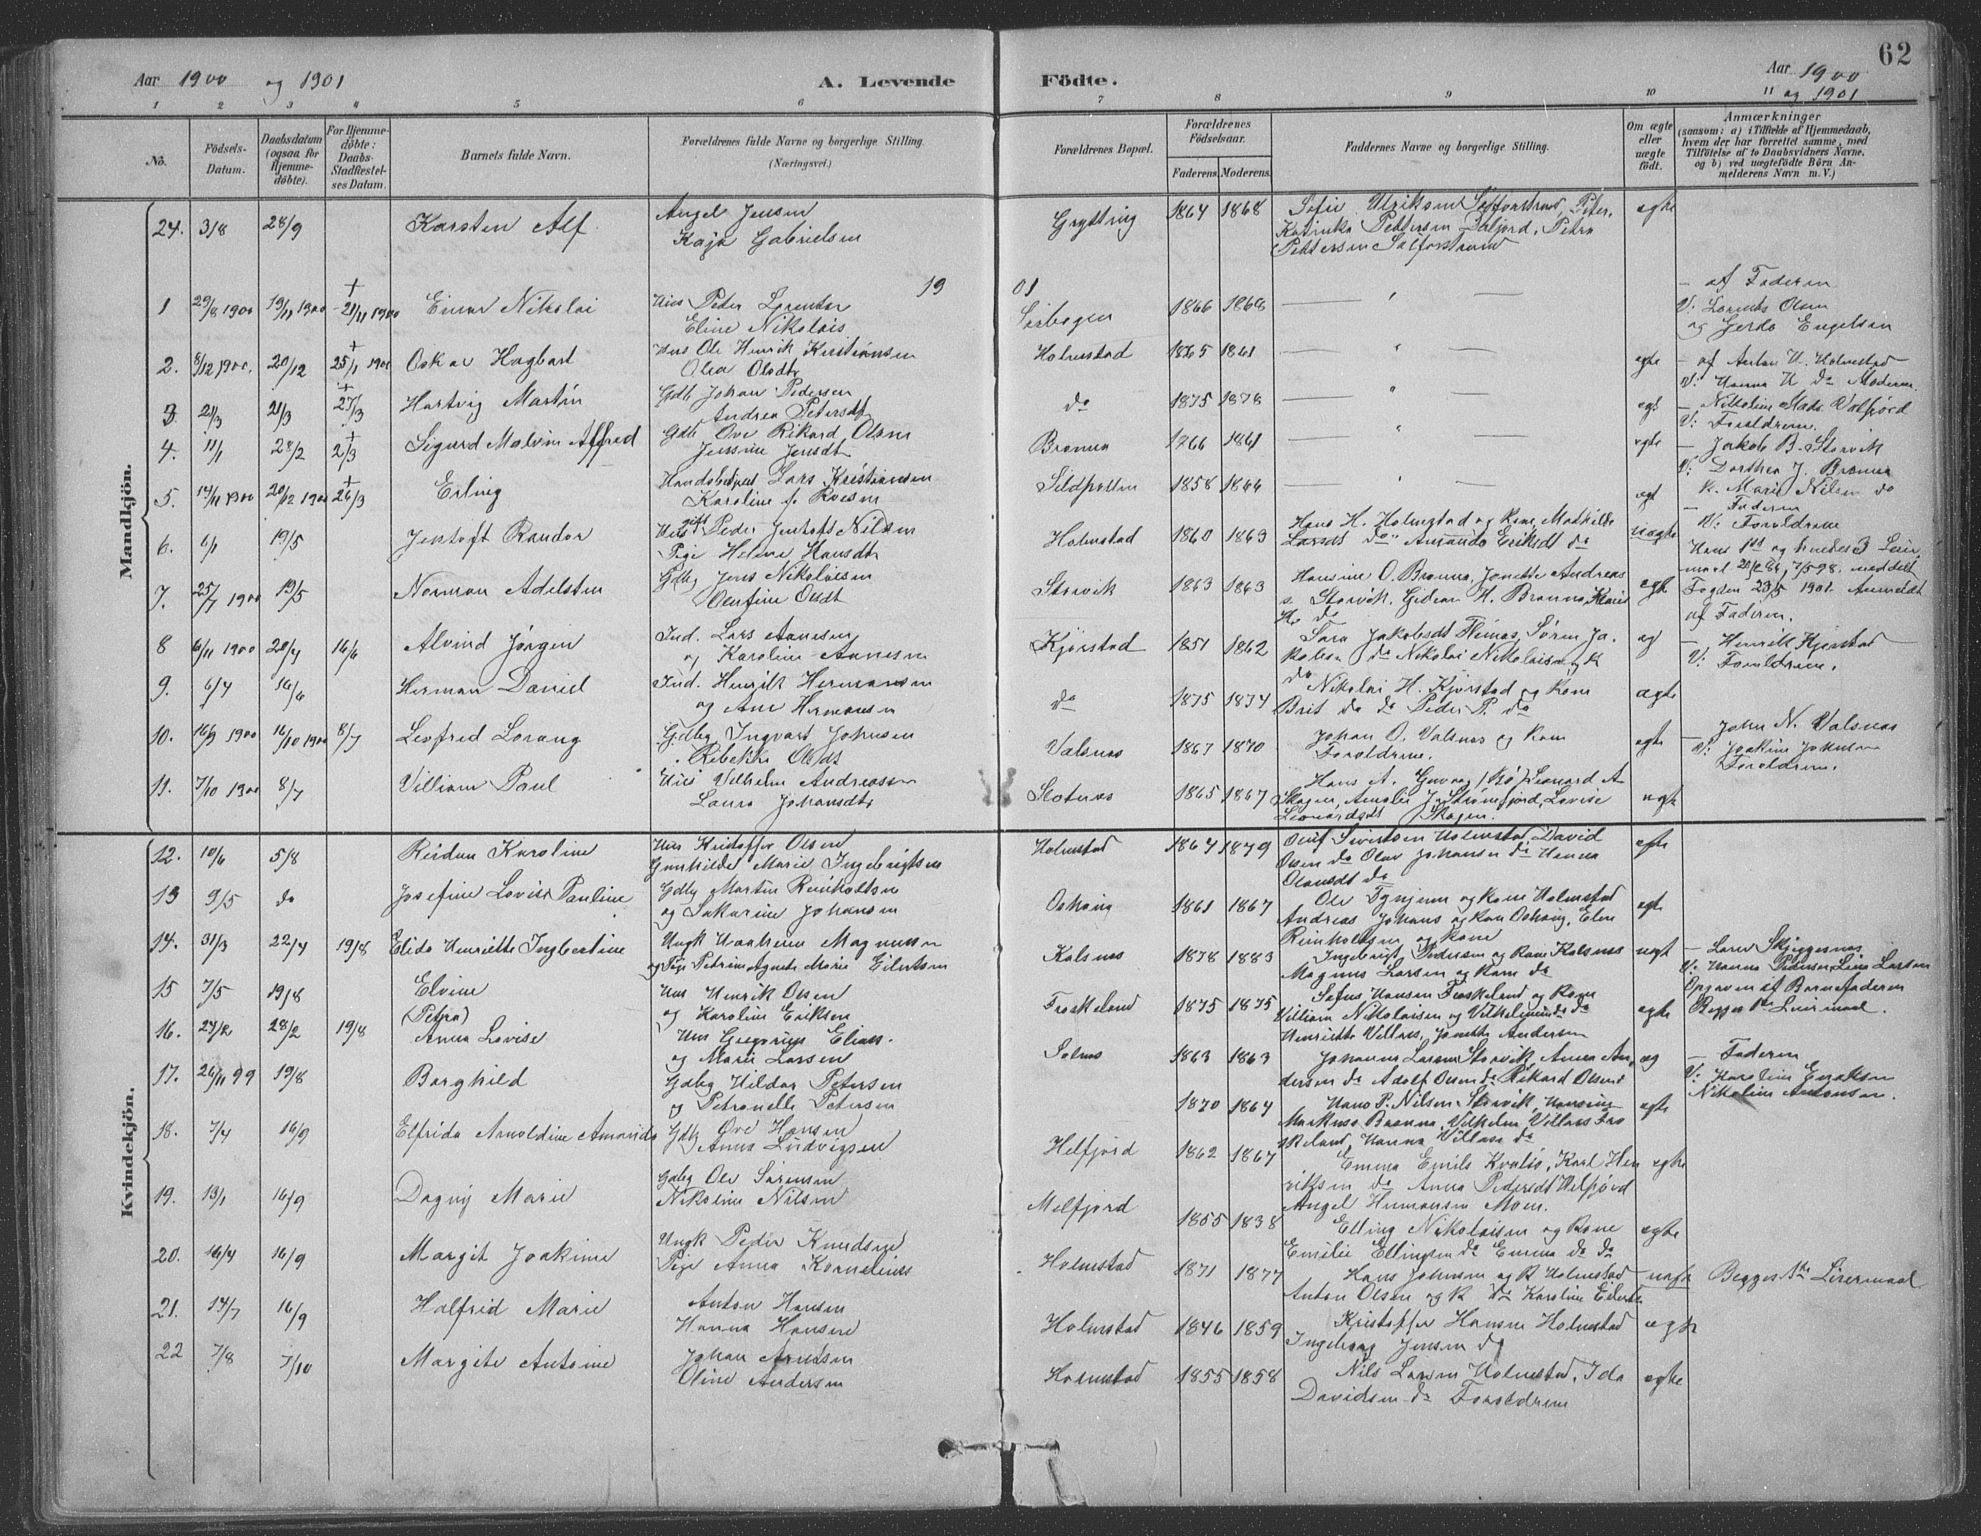 62
Aar 1900 og 1901
A. Levende
Födte.
Aar 1900
" og 1901
1 2 3 4 5 6 7 8 9 10
No.
Födsels-Datum.
Daabsdatum (ogsaa för Hjemme-döbte).
For Hjemme-döbte: Daabs-Stadfæstel-ses Datum.
Barnets fulde Navn.
Forældrenes fulde Navne og borgerlige Stilling. (Næringsvei.)
Forældrenes Bopæl.
Forældrenes Födselsaar.
Faderens. Moderens.
Faddernes Navne og borgerlige Stilling.
Om ægte eller uægte födt.
Anmærkninger
(saasom: a) i Tilfælde af Hjemmedaab, hvem der har forrettet samme, med Tilföielse af to Daabsvidners Navne, og b) ved uægtefödte Börn An-melderens Navn m. V.)
Mandkjön.
24. 3/8 28/9 Karsten Alf Angel Jensen Kaja Gabrielsen Grytting 1864 1868 Sofie Ulriksen Petra Pettersen egte
19 01
1 29/8 1900 19/11 1900 + 21/11 1900 Einar Nikolai Peder Lorentse Eline Nikolais 1866 1868 — " — - af Faderen V: Lorents Olsen og Gerda Engelsen
2. 8/12 1900. 20/12 + 25/1 1900 Oskar Hagbart Ole Henrik Kristiansen Olea Olsdt Holmstad 1865 1861 — " — egte - af Anton H. Holmstad V: Hanna H do Moderen.
3 21/3 21/3 + 27/3 Hartvig Martin Gdb Johan Pedersen Andrea Petersdt do 1875 1878 — " — egt - Nikoline Mads. Valfjord V: Forældrene.
4. 11/1 28/2 + 2/3 Sigurd Malvin Alfred Gdb Ove Rikard Olsen Jensine Jensdt Brønna 1866 1861 — " — egte - Jakob B. Storvik V: Dorthea J. Brønna
5. 14/11 1900 20/12 1900 + 26/3 Erling Lars Kristiansen Karoline f. Roesen Sildpollen 1858 1866 — " — egt k. Marie Nilsen do - Faderen V: Forældrene
6. 6/1 19/5 Jentoft Randor gift Peder Jentoft Nilsen Pige Helene Hansdt Holmstad 1860 1863 Hans H. Holmstad og Kone, Mathilde Larsdt do Amanda Eriksdt do uægte Hans 1st og hendes 3 Leier-maal
7. 25/7 1900 19/5 Norman Adelsten Gdbg Jens Nikolaisen Olentine Olsdt Storvik 1863 1863 Hansine O. Brønna, Jonette Andreas s. Storvik, Gideon H. Brønna, egte Fogden 23/5 1901. Anmeldt af Faderen.
8 6/11 1900 20/4 16/6 Alvind Jørgen Ind. Lars Aanesen og Karoline Aanesen Kjørstad 1851 1862 Sara Jakobsdt Flenas, Søren Ja-kobsen do Nikolai Nikolaisen og K do eg - Henrik Kjørstad V: Forældrene.
9. 6/4 16/6 Herman David Ind. Henrik Hermansen og Ane Hermansen do 1875 1874 Nikolai H. Kjørstad og Kone Brit do do Peder P. do ægte
10. 16/9 1900 16/10 1900 8/7 Levfred Lorang Gdbg Ingvart Johnsen Rebekka Olsdt Valsnes 1867 1870 Johan O. Valsnes og Kone Forældrene. egte John N. Valsnes V: Joakine Johnsen Forældrene.
11. 7/10 1900 8/7 Villiam Paul Vilhelm Andreassen Laura Johansdt Slotnes 1865 1867 Hans A. (Bø) Leonard A Skogen, Amalie J. Strømfjord, Lovise Leonardsdt Skogen. egte
Kvindekjön.
12. 10/6 5/8 Reidun Karoline Hus Kristoffer Olsen Gunhilde Marie Ingebrigtsen Holmstad 1864 1879 Oluf Sivertsen Holmstad, David Olsen do Olav Johansen do Hanna Olausdt do egte
13 9/5 do Josefine Lovise Pauline Gdbg Martin Reinholtsen og Sakarine Johansen Oshaug 1861 1867 Ole og Kone Holmstad Andreas Johans og Kone Oshaug, Elen Reinholtsen og Kone egte
14. 31/3 22/4 19/8 Elida Henriette Ingbertine Ungk Haakon Magnussen og Pige Petrine Agnete Marie Eilertsen Kalsnes 1878 1883 Ingebrigt Pedersen og Kone Kalsnes Magnus Larsen og Kone do uegt - Skjeggesnes V: Hanna Pedersen, Lina Larsen Opgaven af Barnefaderen Begges 1ste Leiermaal.
15 7/5 19/8 Elvine (Petra) Hus Henrik Olsen og Karoline Eriksen Froskeland 1875 1875 Sofus Hansen Froskeland og Kone Villiam Nikolaisen og Vilhelmine do Henriette Villass, Jonette Andersen egte
16. 24/2 28/2 19/8 Anna Lovise Hus Gregorius Elias. og Marie Larsen Selnes 1863 1863 Johanna Larsen Storvik, Anna An-dersen do Adolf Olsen do Rikard Olsen do eg - Faderen V: Karoline Eriksen Nikoline Antonsen.
17. 26/11 99 19/8 Borghild Gdbg Hildor Petersen og Petronelle Petersen 1870 1864 Hans P. Nilsen Storvik, Hansine Markuss Brønna, Vilhelm Villass Fro skeland, Hanna Villass do egte
18. 7/4 16/9 Elfrida Arnoldine Amanda Gdb Ove Hansen Anna Ludvigsen Helfjord 1862 1867 Emma Emils Kvalsø, Karl Hen riksen do Anna Pedersdt Helfjord Angel Hermansen egte
19. 13/1 16/9 Dagny Marie Gdbg Ole Sørensen Nikoline Nilsen Melfjord 1855 1838 Elling Nikolaisen og Kone Emilie Ellingsen do Emma do do egte
20. 16/4 16/9 Margit Joakime Ungk Peder Knudsen Pige Anna Kornelius Holmstad 1871 1877 Hans Johnsen og K Holmstad Anton Olsen og K do Karoline Eilerts uegte Begges 1ste Leiermaal
21. 14/7 16/9 Halfrid Marie Anton Hansen Hanna Hansen Holmstad 1846 1859 Kristoffer Hansen Holmstad Ingeborg Jensen do egte
22 7/8 7/10 Margite Antoine Johan Arntsen Oline Andersen Holmstad 1855 1858 Nils Larsen Holmstad, Ida Davidsen do Forældrene egte